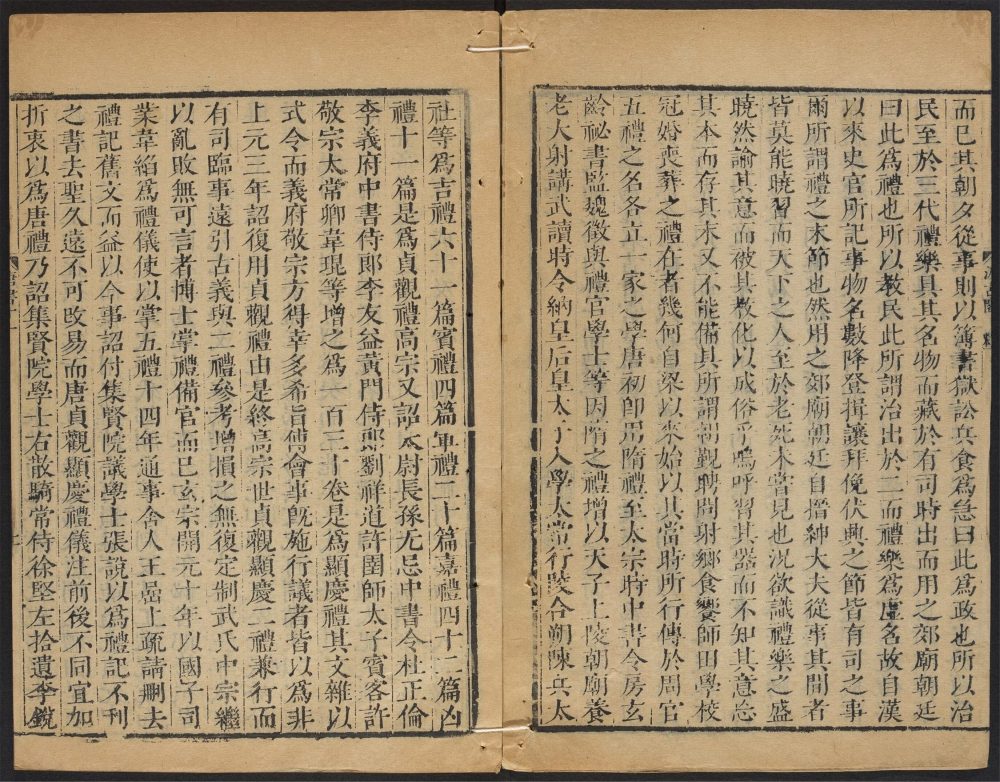 而已其朝夕從事則以簿書獄訟兵食爲急曰此爲政也所以治
民至於三代禮樂具其名物而藏於有司時出而用之郊廟朝廷
曰此爲禮也所以教民此所謂治出於二而禮樂爲虛名故自漢
以來史官所記事物名數降登揖讓拜俛伏興之節皆有司之事
爾所謂禮之末節也然用之郊廟朝廷自搢紳大夫從事其間者
皆莫能曉習而天下之人至於老死未嘗見也況欲識禮樂之盛
曉然諭其意而被其教化以成俗乎嗚呼習其器而不知其意忘
其本而存其末又不能備具所謂朝覲聘問射鄉食饗師田學校
冠婚喪葬之禮在者幾何自梁以來始以其當時所行傳於周官
五禮之名各立一家之學唐初卽用隋禮至太宗時中書令房玄
齡祕書監魏徵與禮官學士等因隋之禮增以天子上陵朝廟養
老大射講武讀時令納皇后皇太子入學太常行陵合朔陳兵太
社等爲吉禮六十一篇賓禮四篇軍禮二十篇嘉禮四十二篇凶
禮十一篇是爲貞觀禮高宗又詔太尉長孫无忌中書令杜正倫
李義府中書侍郎李友益黃門侍郎劉祥道許圉師太子賓客許
敬宗太常卿韋琨等增之爲一百三十卷是爲顯慶禮其文雜以
式令而義府敬宗方得幸多希旨傅會事旣施行議者皆以爲非
上元三年詔復用貞觀禮由是終高宗世貞觀顯慶二禮兼行而
有司臨事遠引古義與二禮參考增損之無復定制武氏中宗繼
以亂敗無可言者博士掌禮備官而已玄宗開元十年以國子司
業韋縚爲禮儀使以掌五禮十四年通事舍人王嵒上疏請刪去
禮記舊文而益以今事詔付集賢院議學士張說以爲禮記不刊
之書去聖久遠不可改易而唐貞觀顯慶禮儀注前後不同宜加
折衷以爲唐禮乃詔集賢院學士右散騎常侍徐堅左拾遺李銳